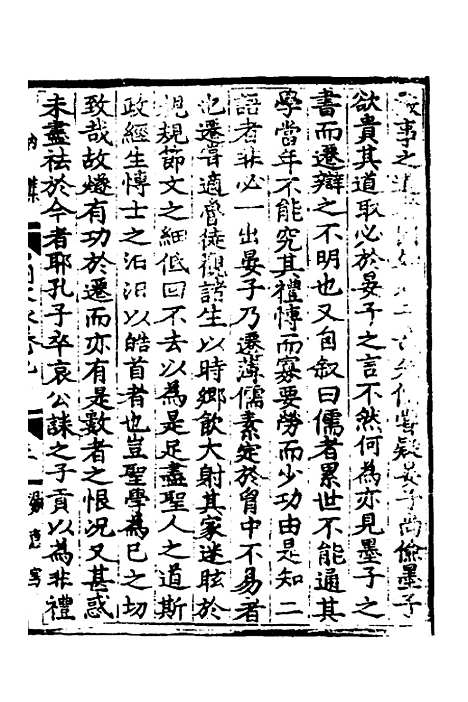 事之疑晏子尚儉墨子
欲貴其道取必於晏子之言不然何為亦見墨子之
書而遷辯之不明也又自叙曰儒者累世不能通其
學當年不能究其禮博而寡要勞而少功由是知二
語者非必一出晏子乃遷薄儒素定於胷中不易者
也遷嘗適魯徒觀諸生以時鄉飲大射其家迷眩於
規規節文之細低回不去以為是足盡聖人之道斯
政經生博士之汨汨以皓首者也豈聖學為已之切
致哉故燧有功於遷而亦有是數者之恨况又甚惑
未盡祛於今者耶孔子卒哀公誄之子貢以為非禮